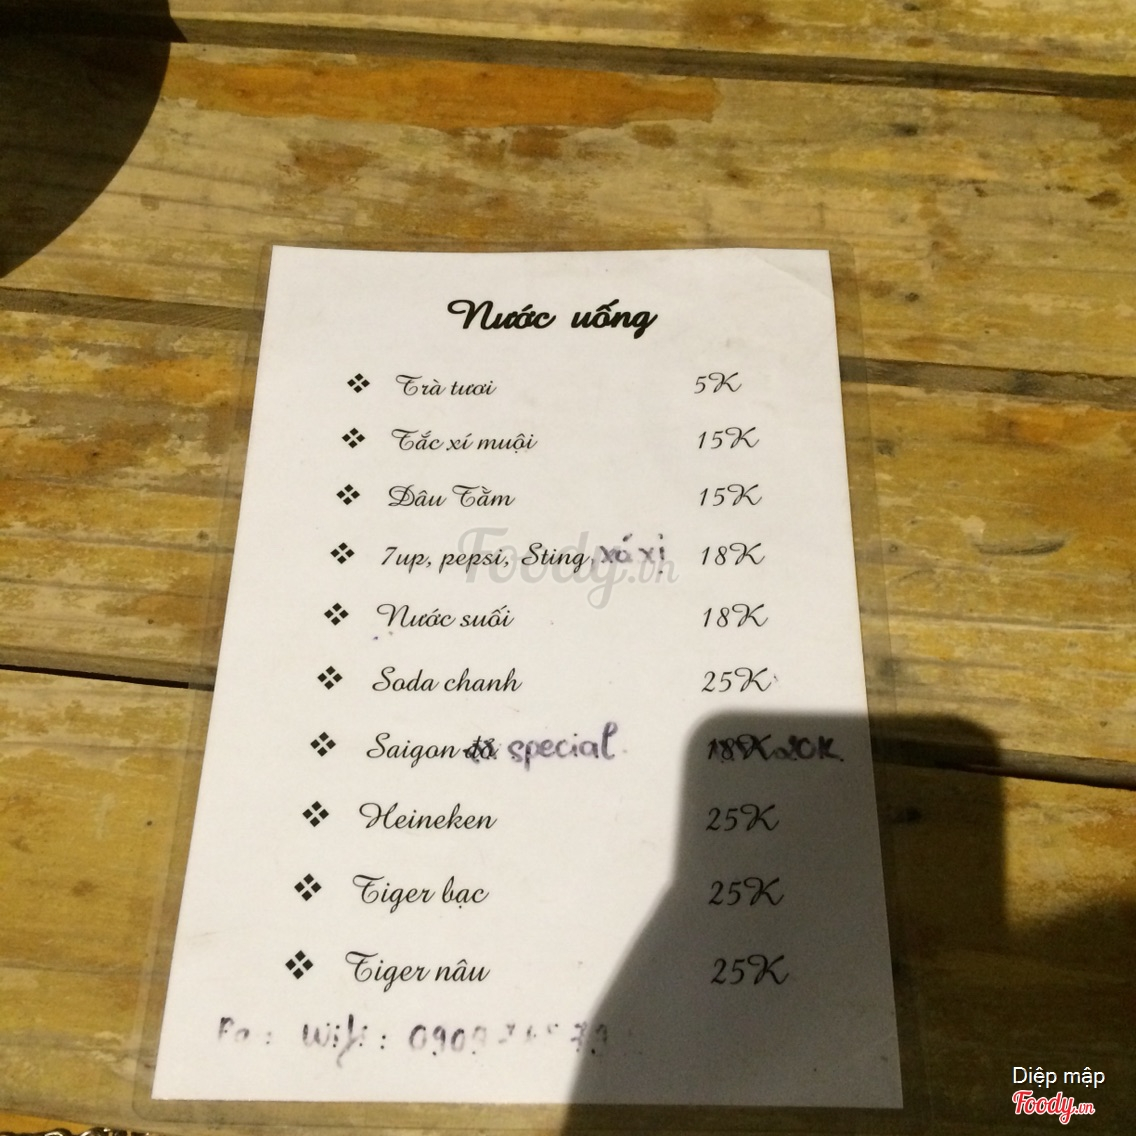 Nước uống
❖ Trà tươi 5K
❖ Tắc xí muội 15K
❖ Dâu Tằm 15K
❖ 7up, pepsi, Sting, xá xị 18K
Foody.vn
❖ Nước suối 18K
❖ Soda chanh 25K
❖ Saigon đỏ special 18K 20K
❖ Heineken 25K
❖ Tiger bạc 25K
❖ Tiger nâu 25K
Wifi:
Diệp mập
Foody.vn